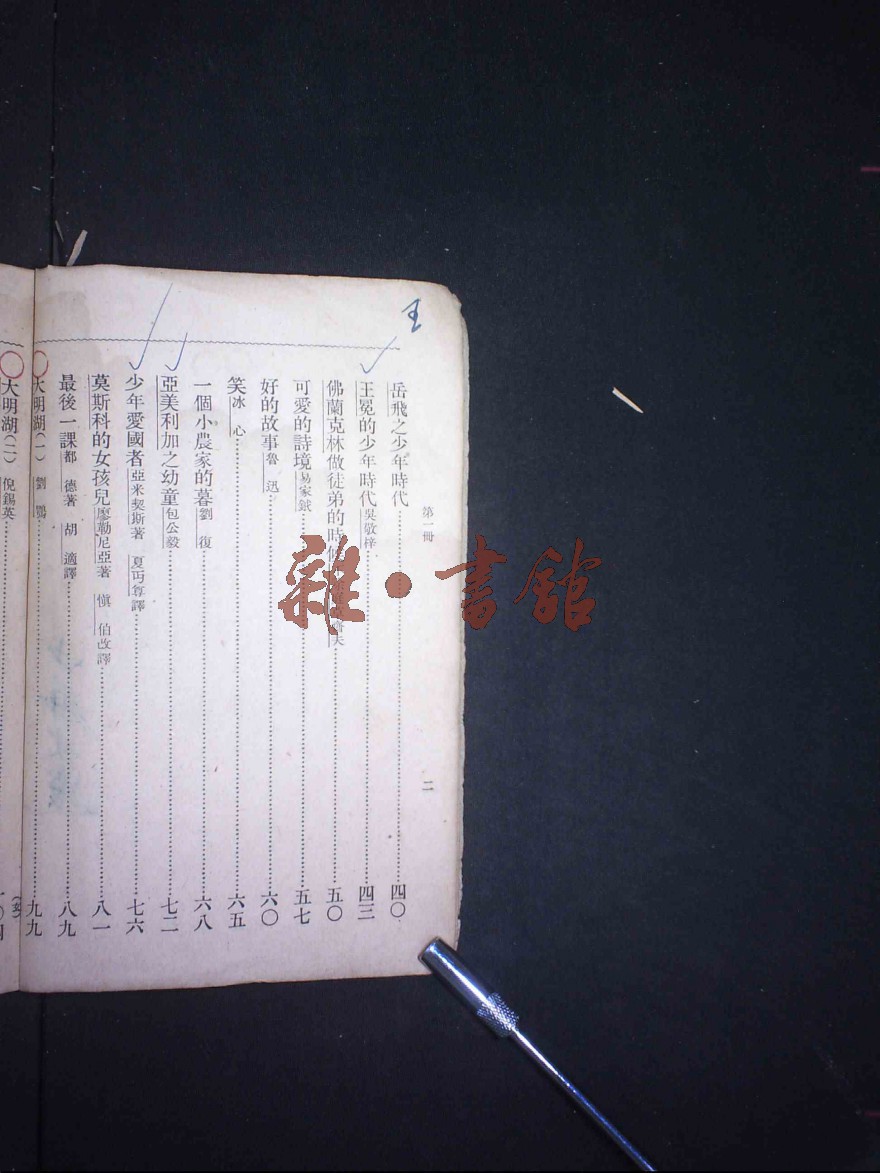 王
第一冊
二
岳飛之少年時代 四〇
王冕的少年時代 吳敬梓 四三
佛蘭克林做徒弟的時候 五〇
可愛的詩境 易家鉞 五七
好的故事 魯迅 六〇
笑 冰心 六五
一個小農家的暮 劉復 六八
亞美利加之幼童 包公毅 七二
少年愛國者 亞米契斯著 夏丏尊譯 七六
莫斯科的女孩兒 廖勒尼亞著 愼伯改譯 八一
最後一課 都德著 胡適譯 八九
大明湖(一) 劉鶚 九九
大明湖(二) 倪錫英
雜·書館